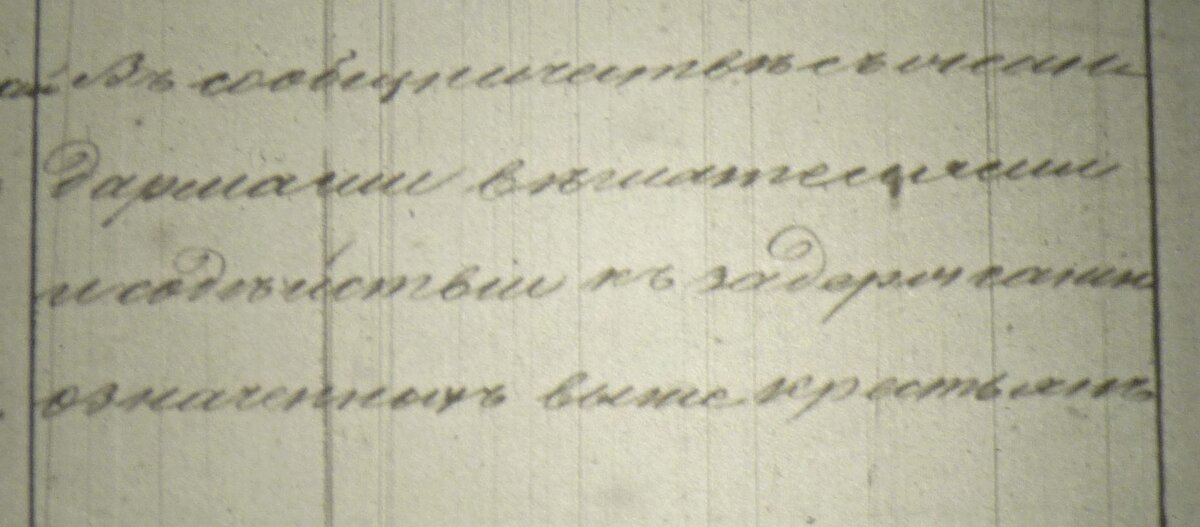 Въ сообщничествѣ съ жан
дармами въ мятежѣ
и содѣйствіи къ задержанію
означенныхъ выше крестьянъ